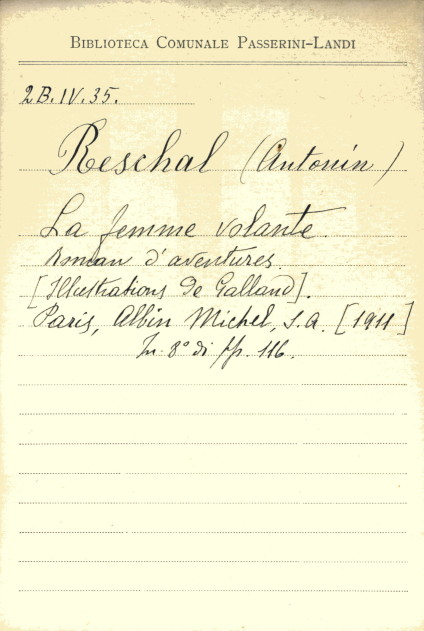 BIBLIOTECA COMUNALE PASSERINI-LANDI
2B.IV.35.
Reschal (Antonin)
La femme volante.
Roman d'aventures.
[Illustrations de Galland].
Paris, Albin Michel, s.a. [1911]
In-8° di pp. 116.